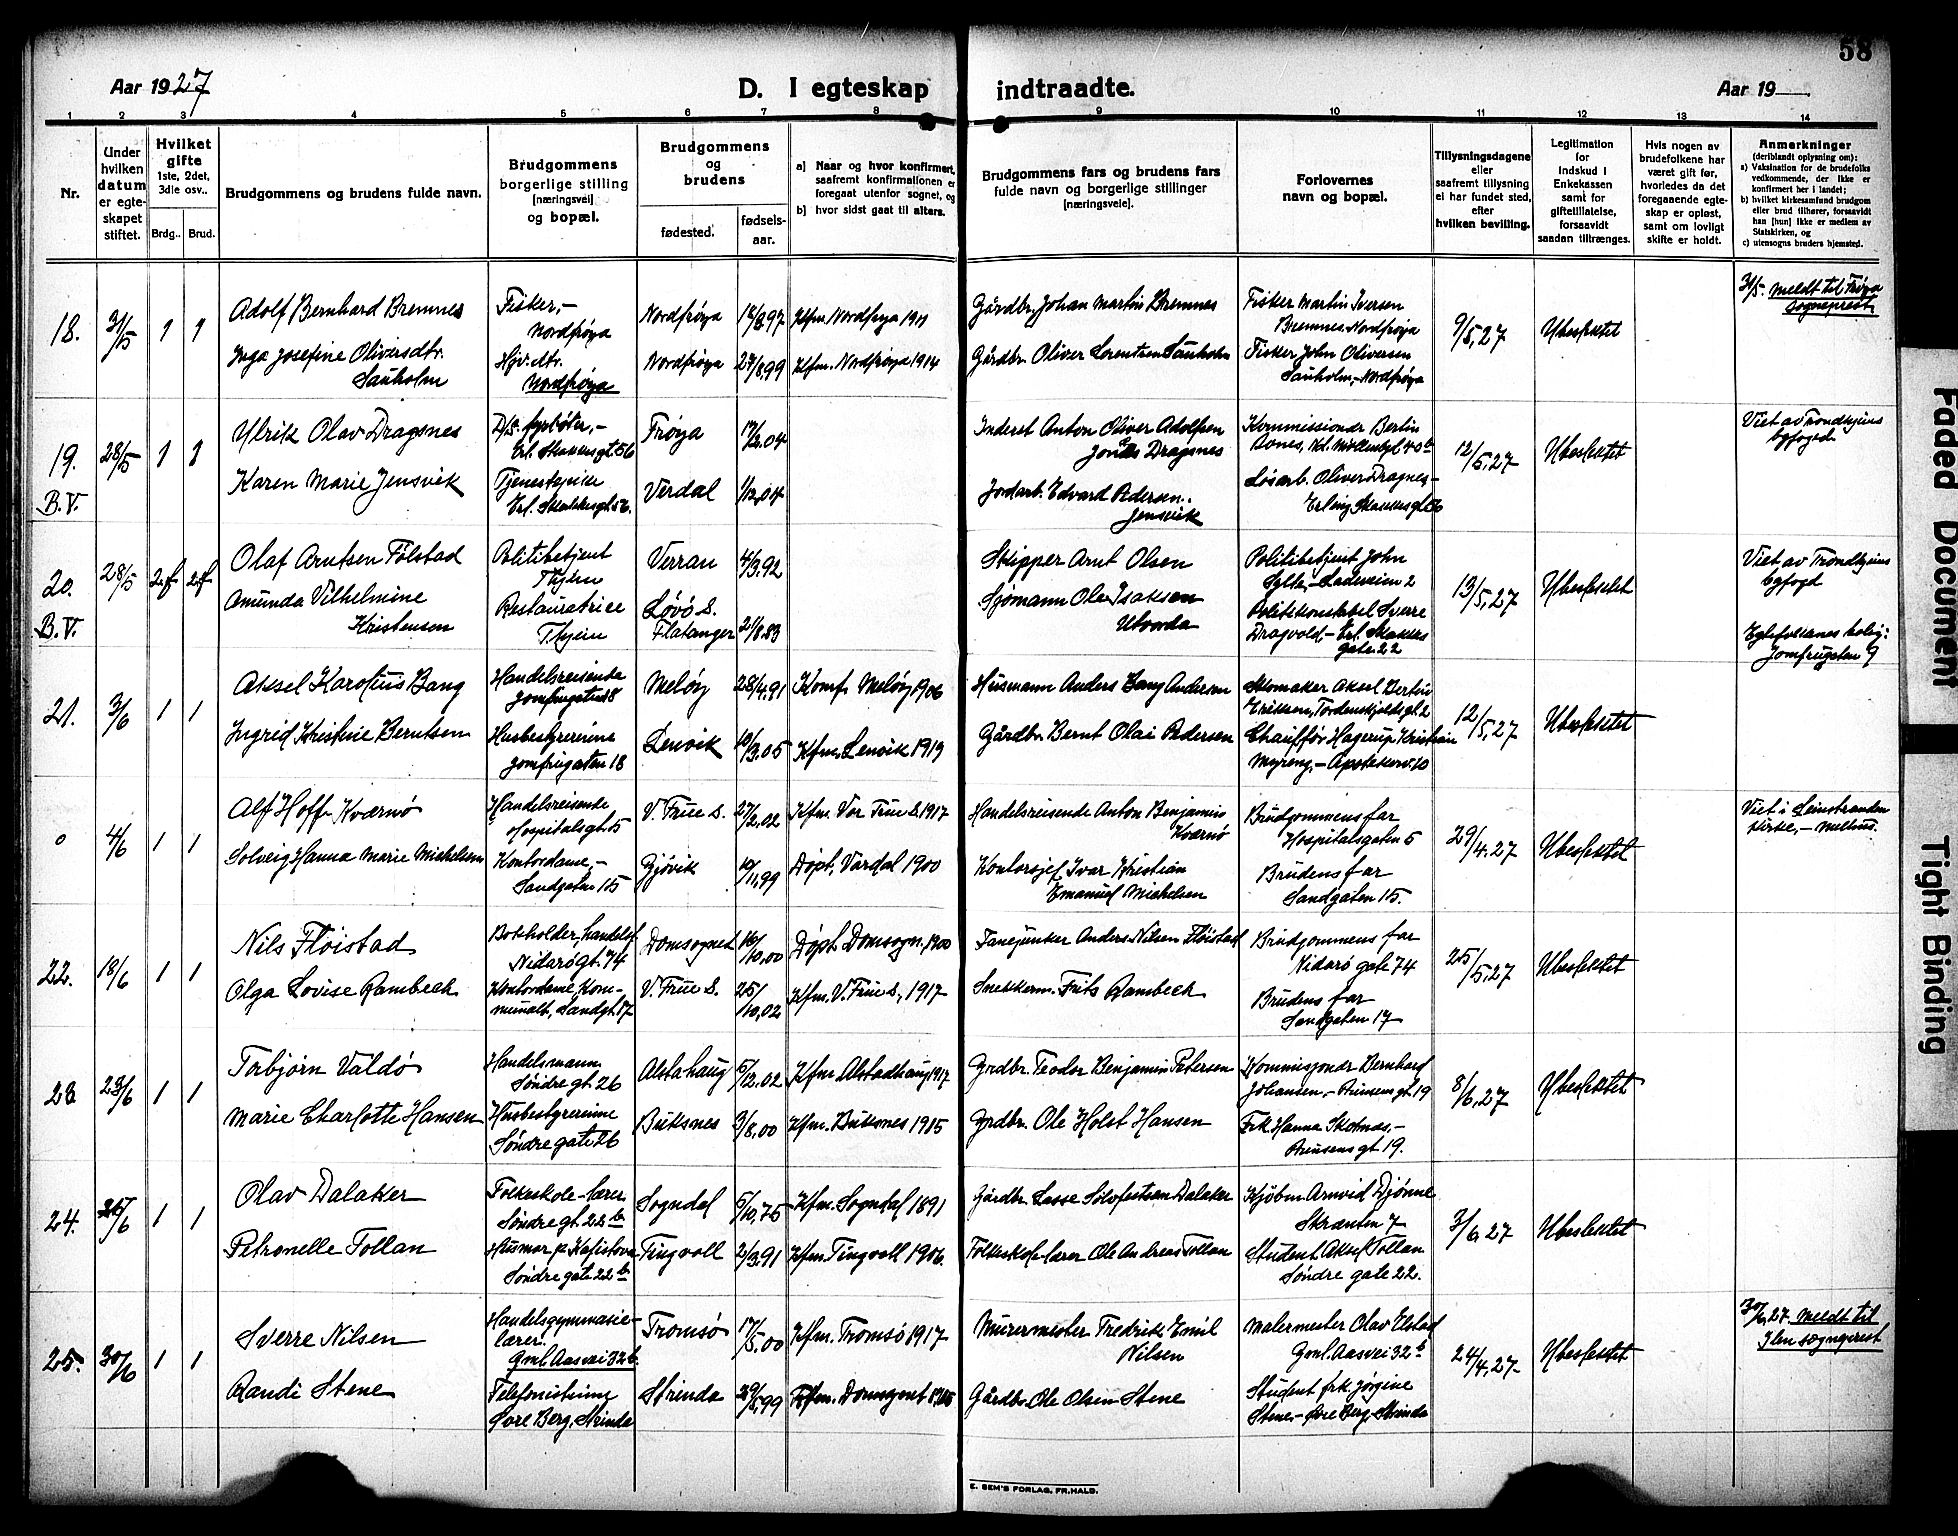 58
Aar 1927
D. I egteskap indtraadte.
Aar 19
1 2 3 4 5 6 7 8 9 10 11 12 13 14
Nr.
Under hvilken datum er egteskapet stiftet.
Hvilket gifte 1ste, 2det, 3die osv..
Brdg.. Brud.
Brudgommens og brudens fulde navn.
Brudgommens borgerlige stilling [næringsvei] og bopæl.
Brudgommens og brudens
fødested.
fødselsaar.
a) Naar og hvor konfirmert, saafremt konfirmationen er foregaat utenfor sognet, og
b) hvor sidst gaat til alters.
Brudgommens fars og brudens fars fulde navn og borgerlige stillinger [næringsveie].
Forlovernes navn og bopæl.
Tillysningsdagene eller saafremt tillysning ei har fundet sted, efter hvilken bevilling.
Legitimation for Indskud i Enkekassen samt for giftetilllatelse, forsaavidt saadan tiltrænges.
Hvis nogen av brudefolkene har været gift før, hvorledes da det foregaaende egteskap er opløst, samt om lovligt skifte er holdt.
Anmerkninger (deriblandt oplysning om):
a) Vaksination for de brudefolks vedkommende, der ikke er konfirmert her i landet;
b) hvilket kirkesamfund brudgom eller brud tilhører, forsaavidt han [hun] ikke er medlem av Statskirken, og
c) utensogns bruders hjemsted.
18. 31/5 1 1
Adolf Bernhard Bremnes
Fisker,-
Nordfrøya
Nordfrøya
Kfm Nordfrøya 1911
Gårdbr. Johan Martin Bremnes
Fisker Martin Iversen
Bremnes Nordfrøya
9/5,27
Ubesluttet
3/5. meldt til Frøya
sogneprest.
Inga Josefine Oliversdtr.
Sauholm
Nordfrøya
Nordfrøya 24/8.99
Kfm. Nordfrøya 1914
Gårdbr. Oliver Lorentsen Sauholm
Fisker John Oliversen
Sauholm,- Nordfrøya
19. 28/5 1 1
B.V.
Ulrik Olav Dragsnes
D/S. fyrbøter,-
Erl. Skakkesgt. 56
Frøya
Inderst Anton Oliver Adolfsen
Jonas Dragsnes
Kommissionær Bertin
12/5,27
Viet av Trondhjems
byfoged.
Karen Marie Jensvik
Tjenestepike
Erl. Skakkesgt. 56.
Verdal 1/12.04
Jordarb. Edvard Pedersen
Jensvik
Løsarb. Oliver Dragnes-
Erling Skakkesgt. 56
20. 28/5
B.V.
Olaf Arntsen Følstad
Politibetjent
Thjem
Verran 4/3.92
Skipper Arnt Olsen
Politibetjent John
13/5,27
Viet av Trondhjems
byfogd
Amunda Vilhelmine
Kristensen
Restauratrice
Thjem
Løvö S.
Flatanger 21/8.83
Sjømann Ole Isaksen
Utvorda
Politikonstabel Sverre
Dragvold,- Erl. Skakkes
gate 22
Egtefolkenes bolig:
Jomfrugaten 9
21. 3/6 1 1
Aksel Karolius Bang
Handelsreisende
Jomfrugaten 18
Meløy 28/4.91
Konf. Meløy 1906
Husmann Anders Bang Andersen
Skomaker Aksel Bertin
Eriksen, Tordenskjoldsgt. 2
12/5,27
Ingrid Kristine Berntsen
Husbestyrerinne
Jomfrugaten 18
Lenvik 10/3.05
Kfm. Lenvik 1919
Gårdbr. Bernt Olai Pedersen
Chauffør Hagerup Kristian
Myreng,- Apotekerv. 10
0 4/6 1 1
Alf Hoff Kværnø
Handelsreisende
Hospitalsgt. 5
V. Frue S. 27/2.02
Kfm. Vor Frue S. 1917
Handelsreisende Anton Benjamin
Kværnø
Brudgommens far
Hospitalsgaten 5
29/4.27
Viet i Leinstranden
kirke,- Melhus.
Solveig Hanna Marie Michelsen
Kontordame,-
Sandgaten 15
Gjövik 10/11.99
Døpt, Vardal 1900
Kontorsjef Ivar Kristian
Emanuel Michelsen
Brudens far
Sandgaten 15.
22. 18/6 1 1
Nils Fløistad
Nidarøgt. 74
Domsognet 16/10.00
Døpt. Domsogn. 1900
Fanejunker Anders Nilsen Fløistad
Brudgommens far
Nidarø gate 74
25/5,27
Olga Lovise Rambech
Kontordame, Kommunalt, Sandgt. 17
V. Frue S. 25/10.02
Kfm. V. Frue S., 1917
Snekkerm. Frits Rambech
Brudens far
Sandgaten 17
23 23/6 1 1
Torbjørn Valdö
Handelsmann
Søndre gt. 26
Alstahaug 5/12.02
Kfm Alstadhaug 1917
Grdbr. Teodor Benjamin Petersen
Kommisjonær Bernhard
Johansen,- Prinsensgt. 19
8/6,27
Marie Charlotte Hansen
Husbestyrerinne
Søndre gate 26
Buksnes 3/8,00
Kfm. Buksnes 1915
Grdbr. Ole Holst Hansen
Frk Hanna Skotnas,-
Prinsensgt 19.
24. 1 1
Olav Dalaker
Folkeskole-lærer
Søndre gt. 22 b
Sogndal 5/10,75
Kfm. Sogndal 1891
Gårdbr. Lasse Sølvfestsen Dalaker
Kjøbm. Arnvid Djönne
Skrænten 7
3/6,27
Petronelle Tollan
Søndre gate 22 b
Tingvoll 2/3.91
Kfm. Tingvoll 1906.
Folkeskole-lærer Ole Andreas Tollan
Student Aksel Tollan
Søndre gate 22.
25. 30/6 1 1
Sverre Nilsen
Handelsgymnasie-
lærer.
Gml. Aasvei 32 b.
Tromsö 17/5.00
Kfm. Tromsö 1917
Murermester Fredrik Emil
Nilsen
Malermester Olav Elstad
Gml. Aasvei 32 b
24/4,27.
30/6,27 Meldt til
Ilen sogneprest.
Randi Stene
Telefonistinne
Øvre Berg, Strinda
Strinda
Gårdbr. Ole Olsen Stene
Student frk. Jørgine
Stene,- Øvre Berg, Strinda
E. SEM'S FORLAG, FR.HALD.
Faded Document
Tight Binding